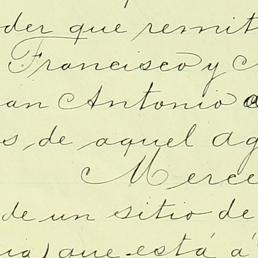 oder que remit
Francisco y
an Antonio
s de aquel Ag
Merce
de un sitio de
ia) que está á